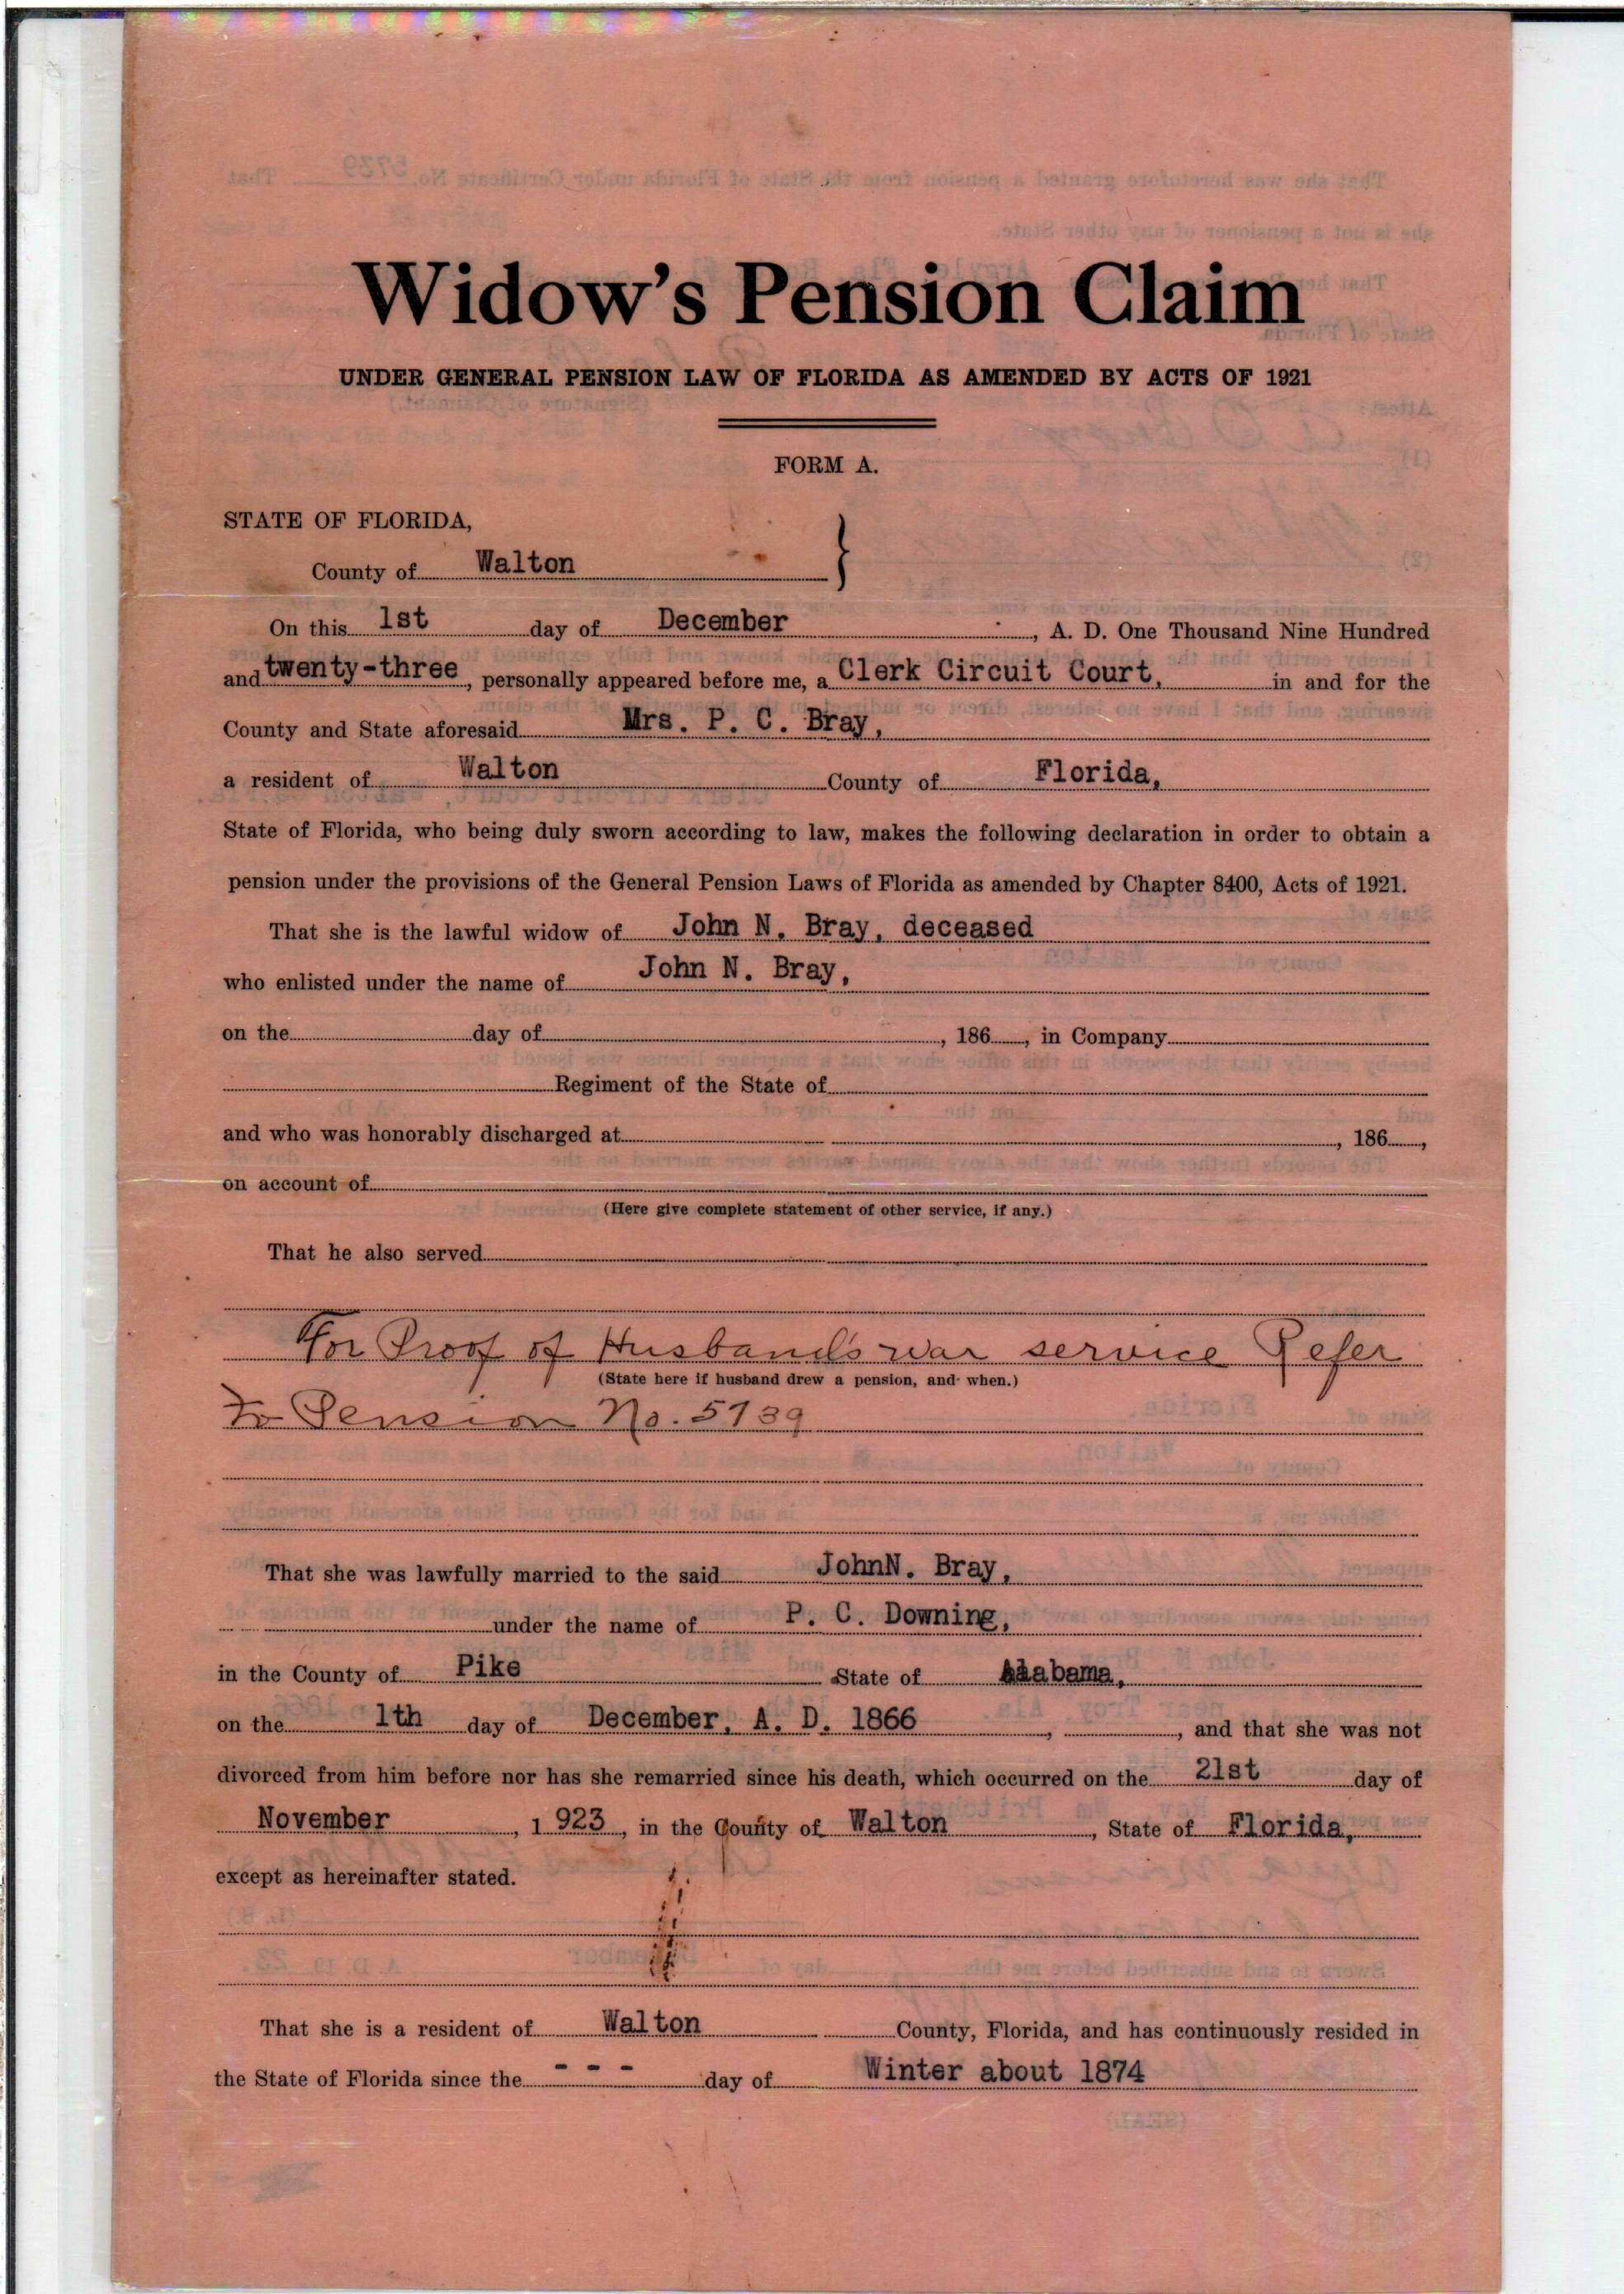 Widow's Pension Claim
UNDER GENERAL PENSION LAW OF FLORIDA AS AMENDED BY ACTS OF 1921
FORM A.
STATE OF FLORIDA,
County of Walton
On this 1st day of December, A. D. One Thousand Nine Hundred
and twenty-three, personally appeared before me, a Clerk Circuit Court, in and for the
County and State aforesaid Mrs. P. C. Bray,
a resident of Walton County of Florida,
State of Florida, who being duly sworn according to law, makes the following declaration in order to obtain a
pension under the provisions of the General Pension Laws of Florida as amended by Chapter 8400, Acts of 1921.
That she is the lawful widow of John N. Bray, deceased
who enlisted under the name of John N. Bray,
on the day of , 186 , in Company
Regiment of the State of
and who was honorably discharged at , 186 ,
on account of
(Here give complete statement of other service, if any.)
That he also served
For Proof of Husband's war service Refer
(State here if husband drew a pension, and when.)
To Pension No. 5739
That she was lawfully married to the said JohnN. Bray,
under the name of P. C. Downing,
in the County of Pike State of Alabama,
on the 1th day of December, A. D. 1866 , , and that she was not
divorced from him before nor has she remarried since his death, which occurred on the 21st day of
November , 1 923 , in the County of Walton , State of Florida,
except as hereinafter stated.
That she is a resident of Walton County, Florida, and has continuously resided in
the State of Florida since the - - - day of Winter about 1874